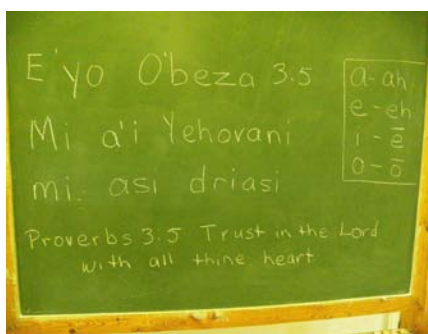 E'yo O'beza 3:5
Mi a'i Yehovani
mi asi driasi
Proverbs 3:5 Trust in the Lord
with all thine heart
a - ah
e - eh
i - ē
o - ō